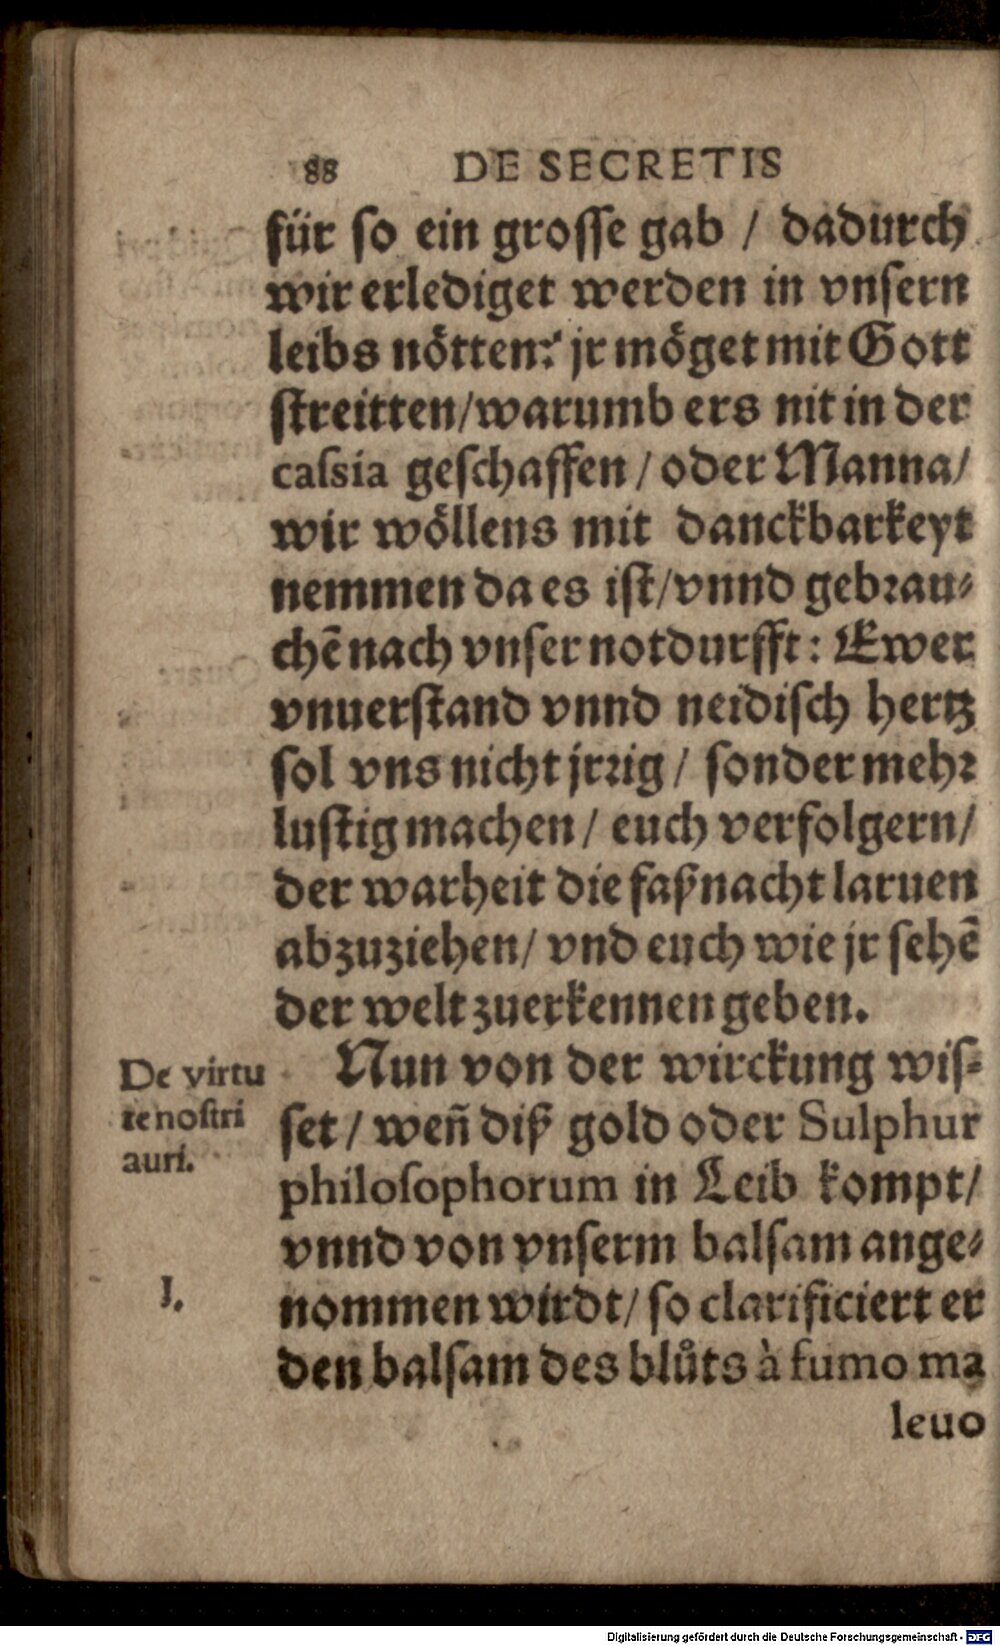 88 DE SECRETIS
für so ein grosse gab / dadurch
wir erlediget werden in vnsern
leibs nötten? jr möget mit Gott
streitten/warumb ers nit in der
caſsia geschaffen / oder Manna/
wir wöllens mit danckbarkeyt
nemmen da es ist/vnnd gebrau⸗
chē nach vnser notdurfft: Ewer
vnuerstand vnnd neidisch hertz
sol vns nicht jrrig / sonder mehr
lustig machen / euch verfolgern/
der warheit die faßnacht laruen
abzuziehen/ vnd euch wie jr sehē
der welt zuerkennen geben.
Nun von der wirckung wis⸗
De virtu
te noſtri
auri.
set / weñ diß gold oder Sulphur
philoſophorum in Leib kompt/
vnnd von vnserm balsam ange⸗
I.
nommen wirdt/ so clarificiert er
den balsam des blůts à fumo ma
leuo
Digitalisierung gefördert durch die Deutsche Forschungsgemeinschaft - DFG